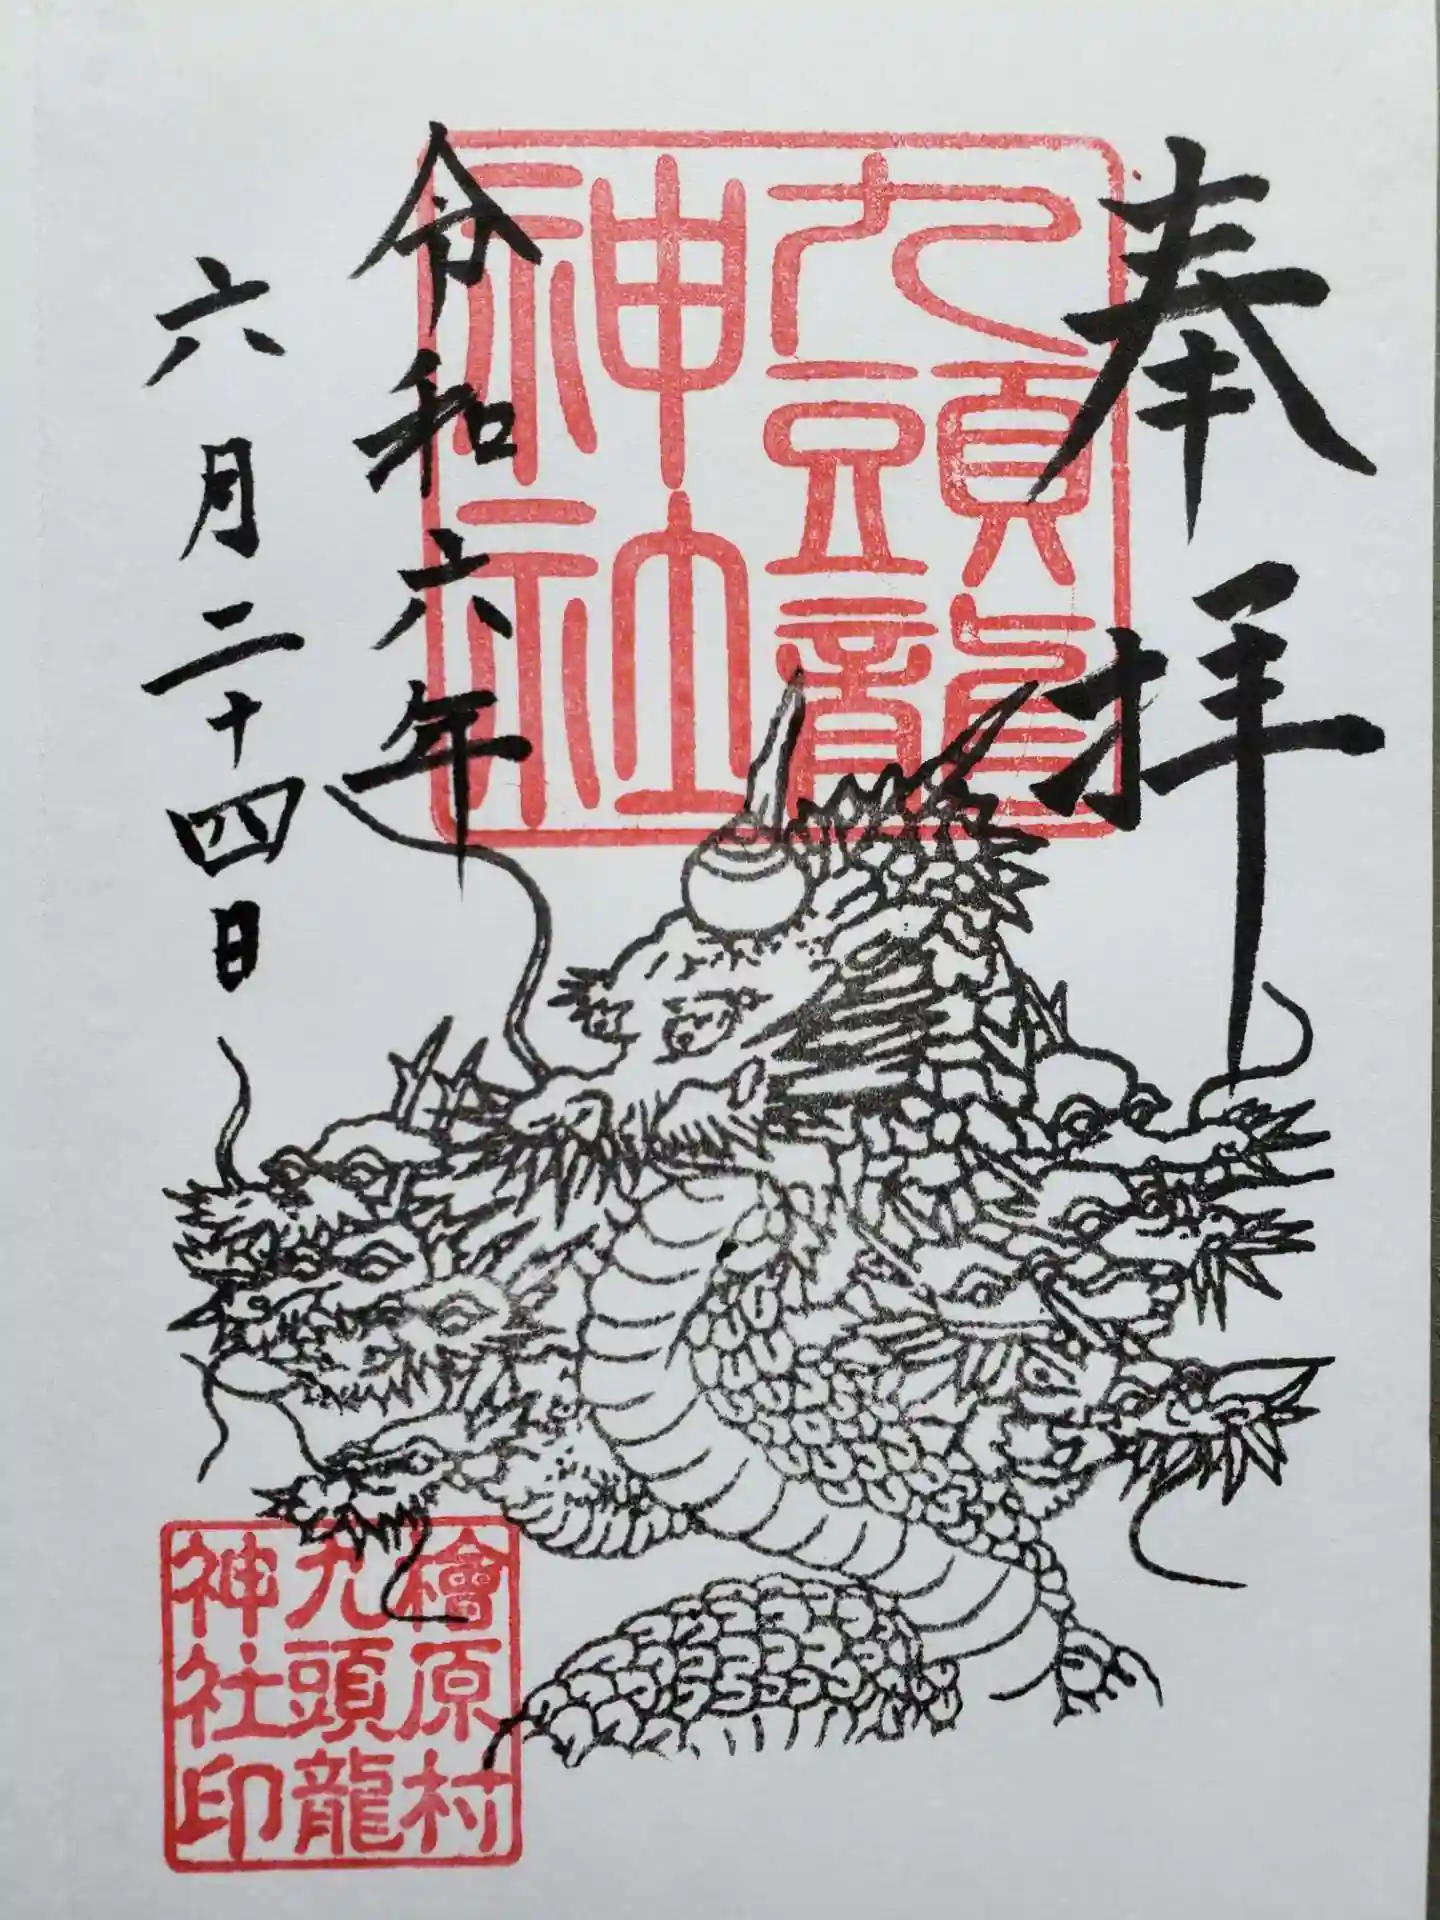 奉拝
九頭龍
神社
令和六年
六月二十四日
檜原村
九頭龍
神社印